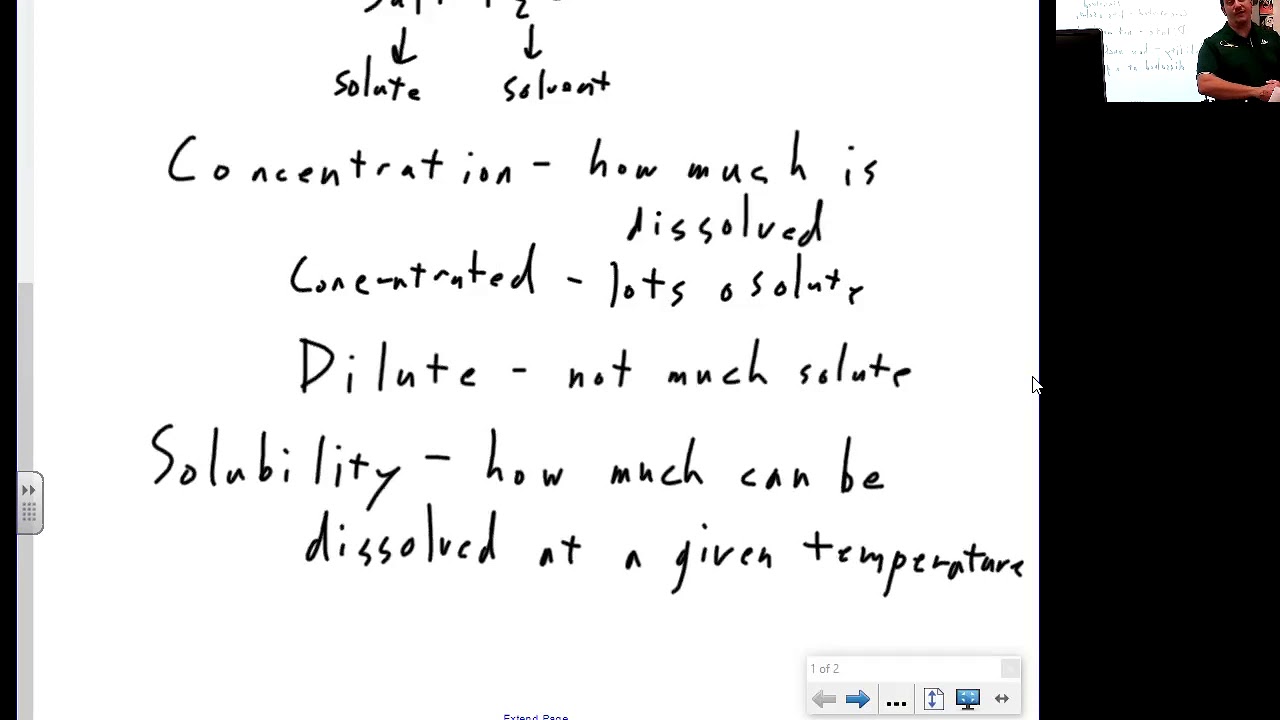 solute solvent
Concentration - how much is
dissolved
Concentrated - lots o solute
Dilute - not much solute
Solubility - how much can be
dissolved at a given temperature
1 of 2
Extend Page